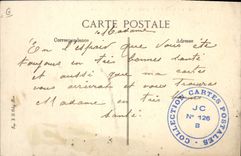 CARTE POSTALE
Correspondance Adresse
Madame
En l'espoir que vous ete
toujours en très bonne santé
et aussi que ma carte
vous arriverat et vous trouvera
Madame en très bonne
santé.
COLLECTION CARTES POSTALES
JC
N° 126
B